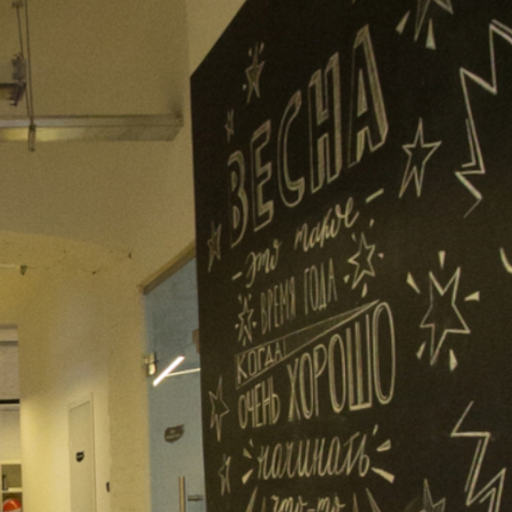 ВЕСНА
– это такое –
ВРЕМЯ ГОДА
КОГДА
ОЧЕНЬ ХОРОШО
начинать
что-то